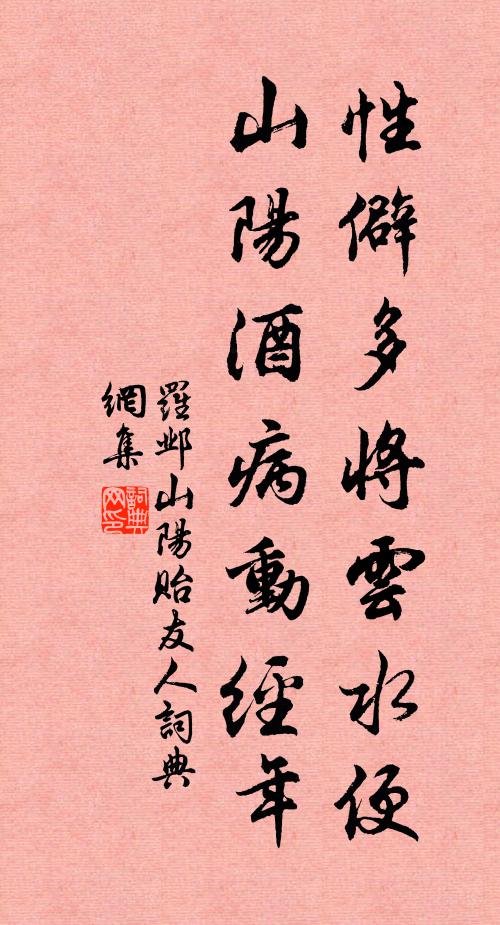 性僻多將雲水便
山陽酒病動經年
羅鄴山陽貽友人詞典
網集
詞典
网印